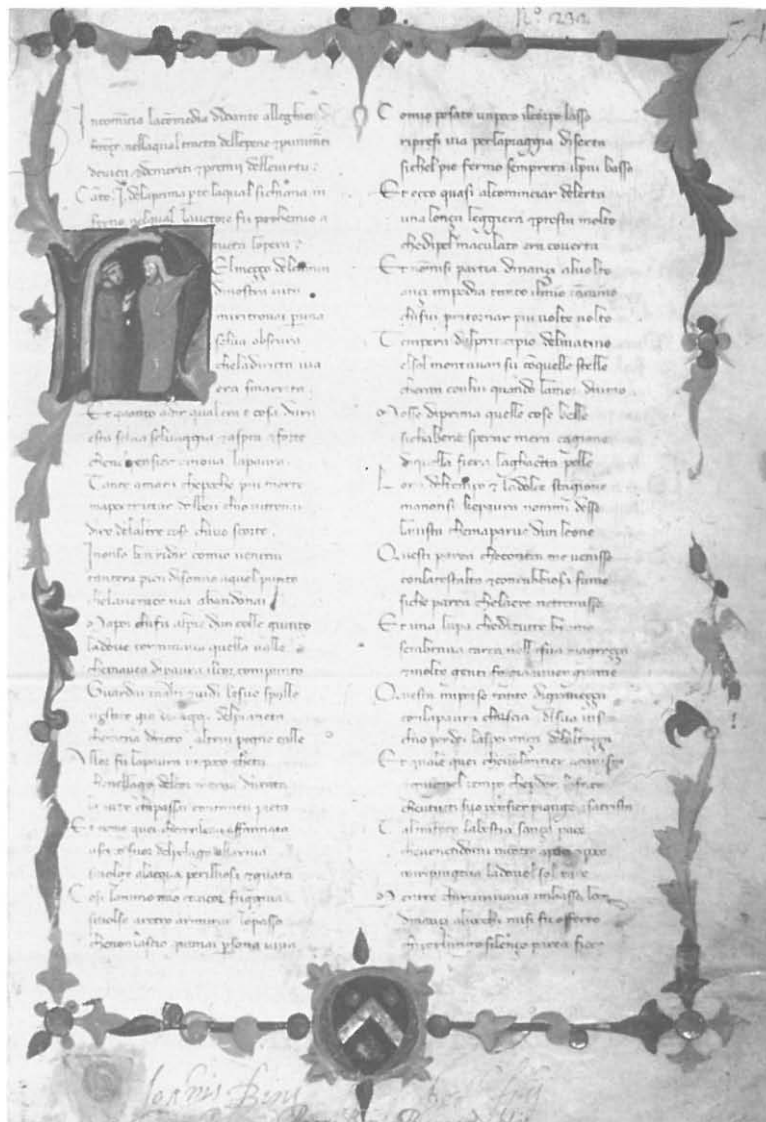 Nº. 232
Incomincia la comedia didante alleghieri di
nellaqual tracta dellepene & punimenti
devicij & demeriti & premij dellevirtu:
delaprima parte laqual sichiama in
ferno nelqual lauctore fa prohemio a
tucta lopera:
El mezzo delcamin
dinostra vita
miritrovai p una
selva obscura
cheladiricta via
era smarrita
Et quanto adir qual era e cosa dura
esta selva selvaggia & aspra & forte
che nel pensier rinova lapaura
Tante amara chepocho piu morte
ma per tractar delben chio vitrovai
diro delaltre cose chivo scorte
I nonso ben ridir comio ventrai
tantera pien disonno aquel punto
chelaverace via abandonai
Mapoi chifu alpie dun colle giunto
ladove terminava quella valle
chemavea dipaura ilcor compunto
Guardai inalto & vidi lesue spalle
vestite gia deraggi delpianeta
chemena dricto altrui pogne calle
Allor fu lapaura un poco cheta
chenellago delcor mera durata
la nocte chipassai contanta pieta
Et come quei checonlena affannata
uscito fuor delpelago allariva
sivolge alacqua perilliosa & guata
Cosi lanimo mio cancor fuggiva
sivolse aretro arimirar lopasso
chenonlascio giamai persona viva
Comio posato unpoco ilcorpo lasso
ripresi via perlapiaggia diserta
sichel pie fermo semprera ilpiu basso
Et ecco quasi alcominciar delerta
una lonça leggiera & presta molto
chedipel maculato era coverta
Et nōmisi partia dinançi alvolto
ançi impedia tanto ilmio camino
chifui pritornar piu volte volto
Tempera dalprincipio delmatino
elsol montavan su cōquelle stelle
cheran conlui quando lamor divino
Mosse diprima quelle cose belle
sichabene sperar mera cagione
diquella fiera lagaietta pelle
Lora deltempo & ladolce stagione
manonsi chepaura nommi desse
lavista chemaparve dun leone
Questi parea checontra me venisse
conlatestalta & conrabbiosa fame
siche parea chelaere netemesse
Et una lupa cheditutte brame
sembrava carca nella sua magrezza
& molte genti fe gia viver grame
Questa mi porse tanto digravezza
conlapaura chuscia disua vista
chio perdei lasperanza delaltezza
Et quale quei chevolontier acquista
& giugnel tempo cheperder lo face
chentutti suo pensier piange & sattrista
Tal mifece labestia sança pace
chevenendomi incontro apoco apoco
mi ripingeva ladovel sol tace
Mentre chirimirava inbasso loco
dinançi aliocchi misi fu offerto
chiperlungo silenço parea fioco